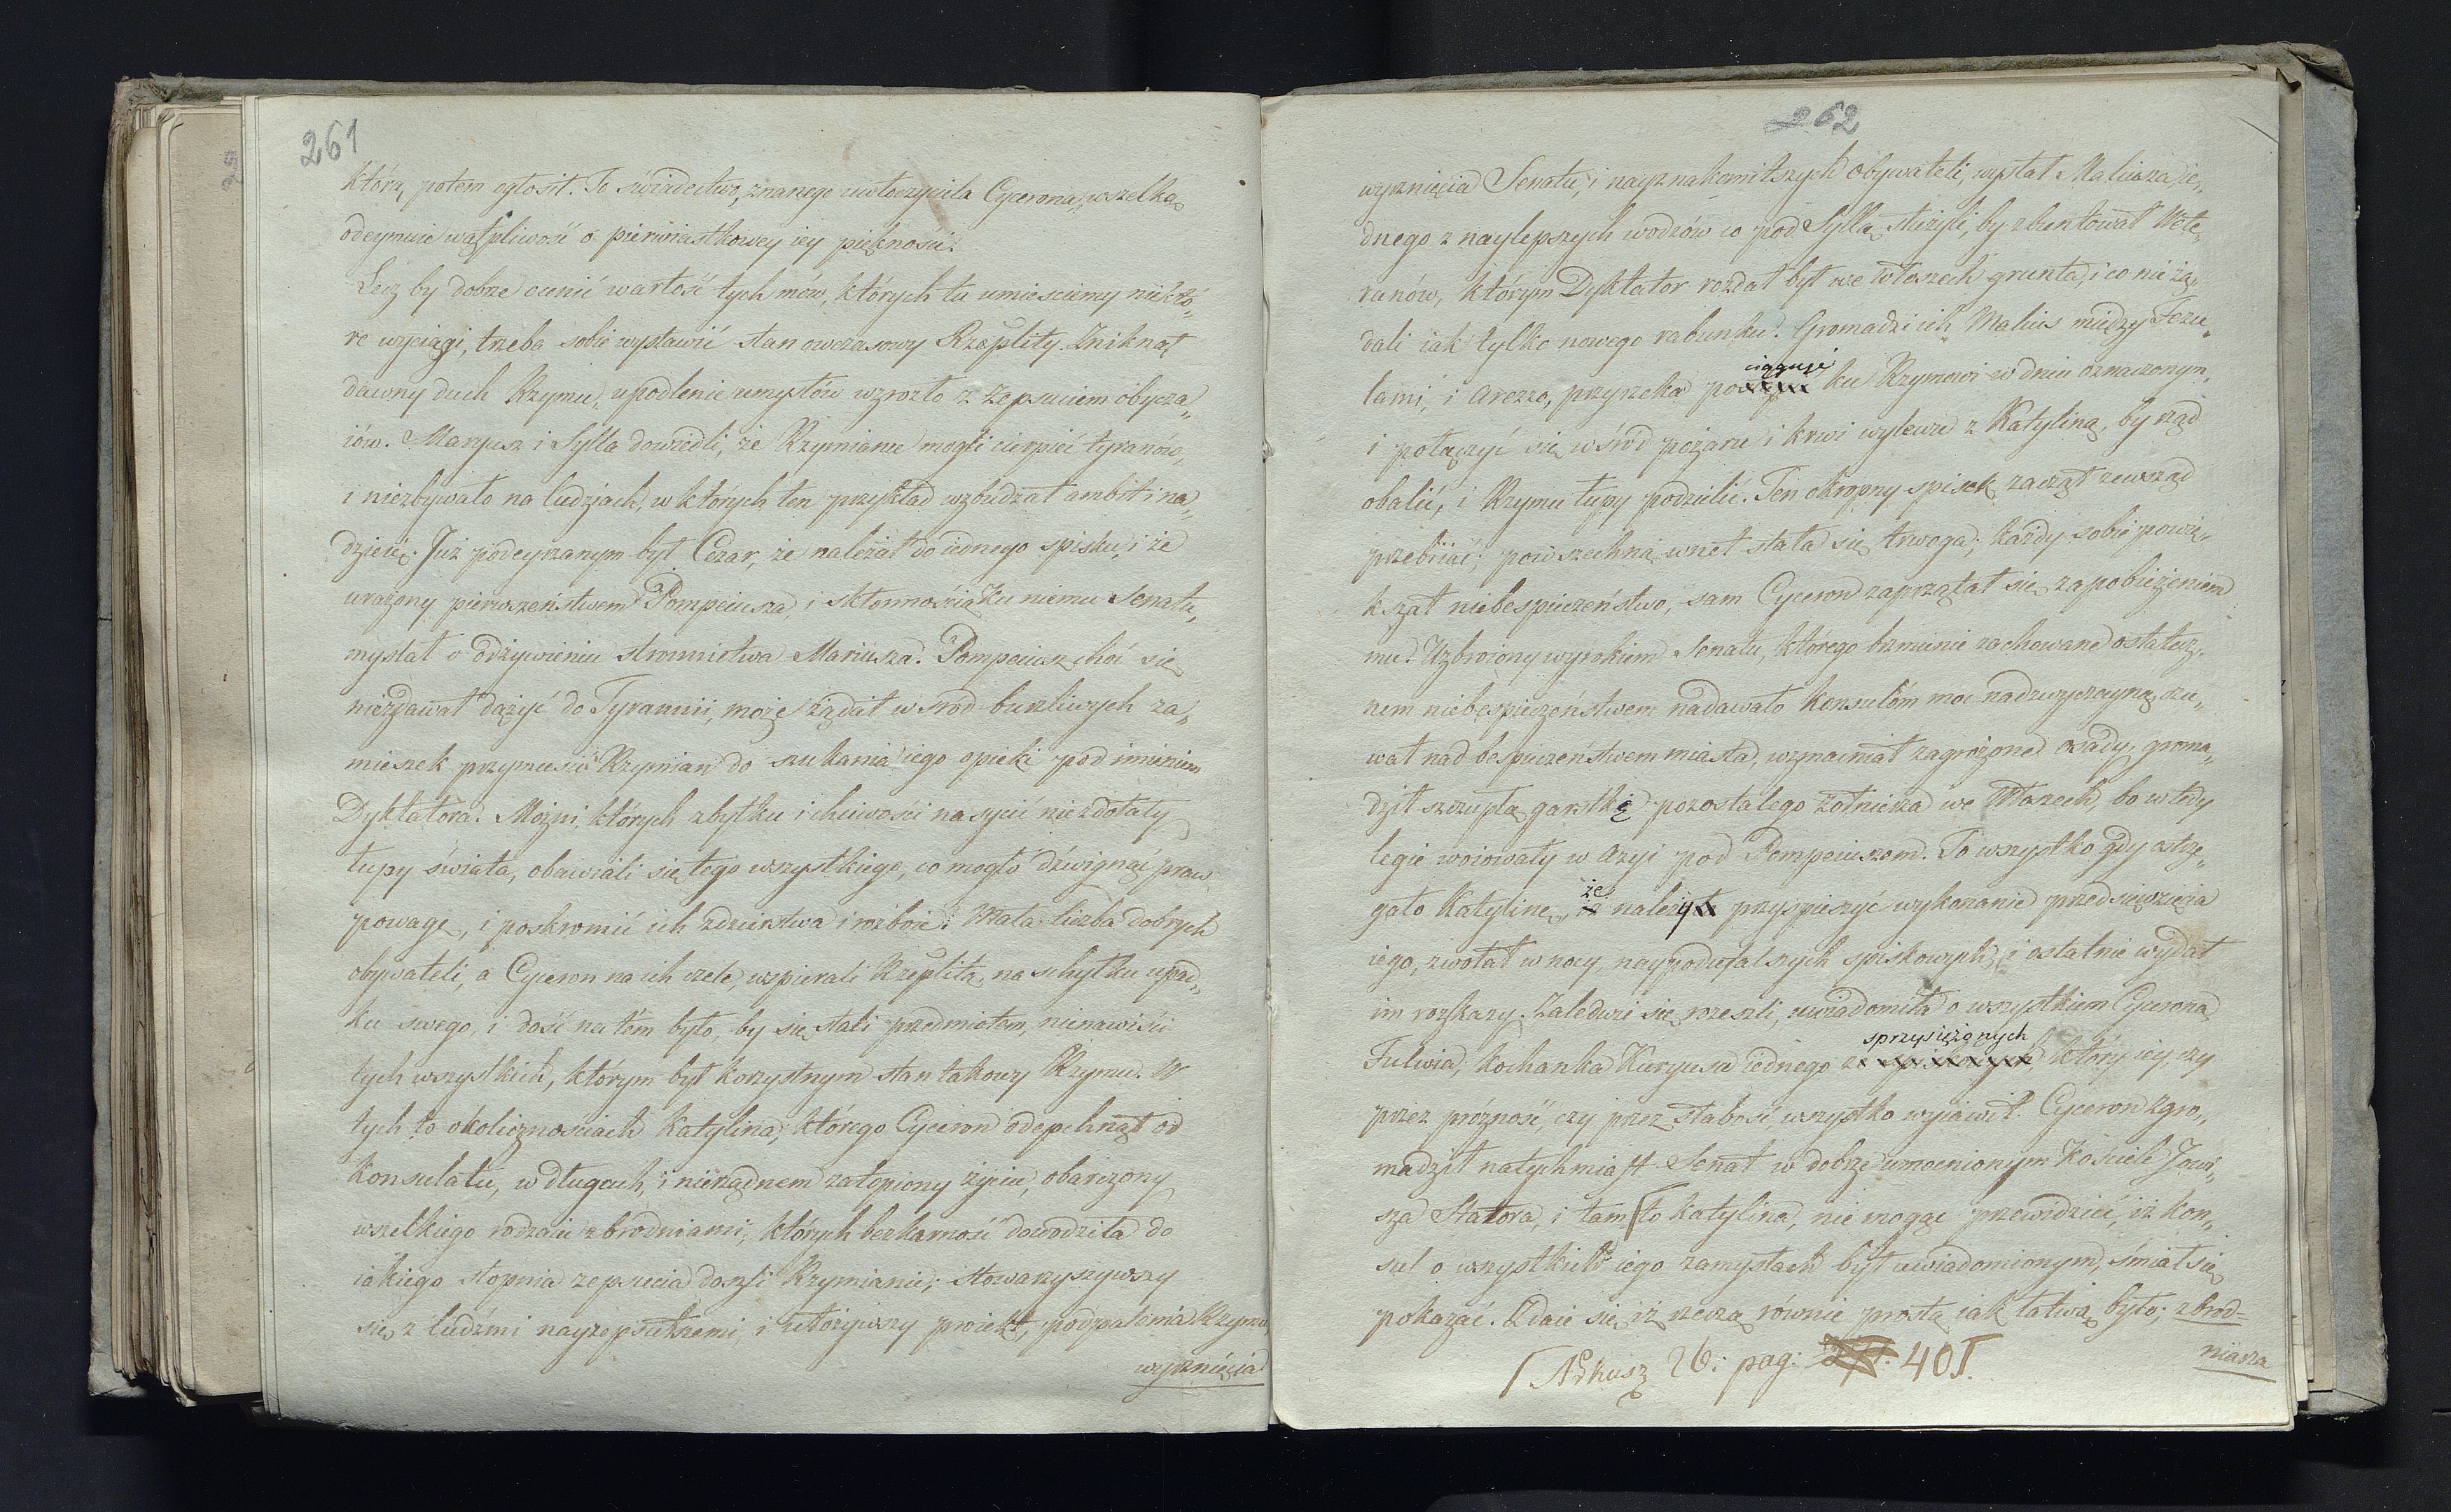 261
którą potem ogłosił. To świadectwo, znanego uwłoczyciela Cycerona, wszelką
odeymuie wątpliwość o pierwiastkowey iey piękności.
Lecz by dobrze ocenić wartość tych mów, których tu umieścimy niektó„
re wyciągi, trzeba sobie wystawić stan owczasowy Rzeplity. Zniknął
dawny duch Rzymu, upodlenie umysłów wzrozło z zepsuciem obycza„
iów. Maryusz i Sylla dowiedli, że Rzymianie mogli cierpieć tyranów,
i niezbywało na ludziach, w których ten przykład wzbudzał ambit: na„
dzieię. Już podeyrzanym był Cezar, że należał do iednego spisku, i że
urażony pierwszeństwem Pompeiusza, i skłonnością ku niemu Senatu,
myslał o odżywieniu stronnictwa Mariusza. Pompeiusz choć się
niezdawał dążyć do Tyrannii, może żądał w śród burzliwych za„
mieszek przymusić Rzymian do szukania iego opieki pod imieniem
Dyktatora. Możni, których zbytku i chciwości nasycić niezdołały
łupy świata, obawiali się tego wszystkiego, co mogło dźwignąć praw
powagę, i poskromić ich zdzierstwa i rozboie. Mała liczba dobrych
obywateli, a Cyceron na ich czele, wspierali Rzeplitą na schyłku upad„
ku swego, i dość na tém było, by się stali przedmiotem, nienawiści
tych wszystkich, którym był korzystnym stan takowy Rzymu. W
tych to okolicznościach Katylina, którego Cyceron odepchnął od
Konsulatu, w długach, i nierządnem zatopiony życiu, obarczony
wszelkiego rodzaiu zbrodniami, których bezkarność dowodziła do
iakiego stopnia zepsucia doszli Rzymianie; stowarzyszywszy
się z ludźmi nayzepsutszemi, i ułożywszy proiekt, podpalenia Rzymu
wyrznięcia
262
wyrznięcia Senatu, i nayznakomitszych obywateli, wysłał Maliusza ie„
dnego z naylepszych wodzów co pod Syllą służyli, by zbuntował Wete„
ranów, którym Dyktator rozdał był we Włoszech grunta, i co nie żą„
dali iak tylko nowego rabunku. Gromadzi ich Malius między Fezu„
ciągnąć
lami, i Arezzo, przyrzeka po ku Rzymowi w dniu oznaczonym,
i połączyć się wśród pożaru i krwi wylewu z Katyliną, by rząd
obalić, i Rzymu łupy podzielić. Ten okropny spisek zaczął zewsząd
przebiiać; powszechną wnet stała się trwoga; każdy sobie powię„
kszał niebespieczeństwo, sam Cyceron zaprzątał się zapobieżeniem
mu. Uzbroiony wyrokiem Senatu, którego brzmienie zachowane ostatecz„
nem niebespieczeństwem nadawało Konsulóm moc nadzwyczayną, czu„
wał nad bespieczeństwem miasta, wzmacniał zagrożone osady, groma„
dził szczupłą garstkę pozostałego żołnierza we Włoszech, bo wtedy
legie woiowały w Azyi pod Pompeiuszem. To wszystko gdy ostrze„
że
gało Katylinę, iż należy przyspieszyć wykonanie przedsięwzięcia
iego, zwołał w nocy, naypodufalszych spiskowych, i ostatnie wydał
im rozkazy. Zaledwie się rozeszli, uwiadomiła o wszystkiem Cycerona
sprzysiężonych
Fulwia, kochanka Kuryusa iednego z który iey, czy
przez próżność, czy przez słabość, wszystko wyiawił. Cyceron zgro„
madził natychmiast Senat w dobrze umocnionym Kościele Jowi„
sza Statora, i tam to Katylina, nie mogąc przewidzieć, iż kon„
sul o wszystkich iego zamysłach był uwiadomionym, śmiał się
pokazać. Zdaie się iż rzeczą równie prostą iak łatwą było; zbrod-
niarza
Arkusz 26: pag: 401.